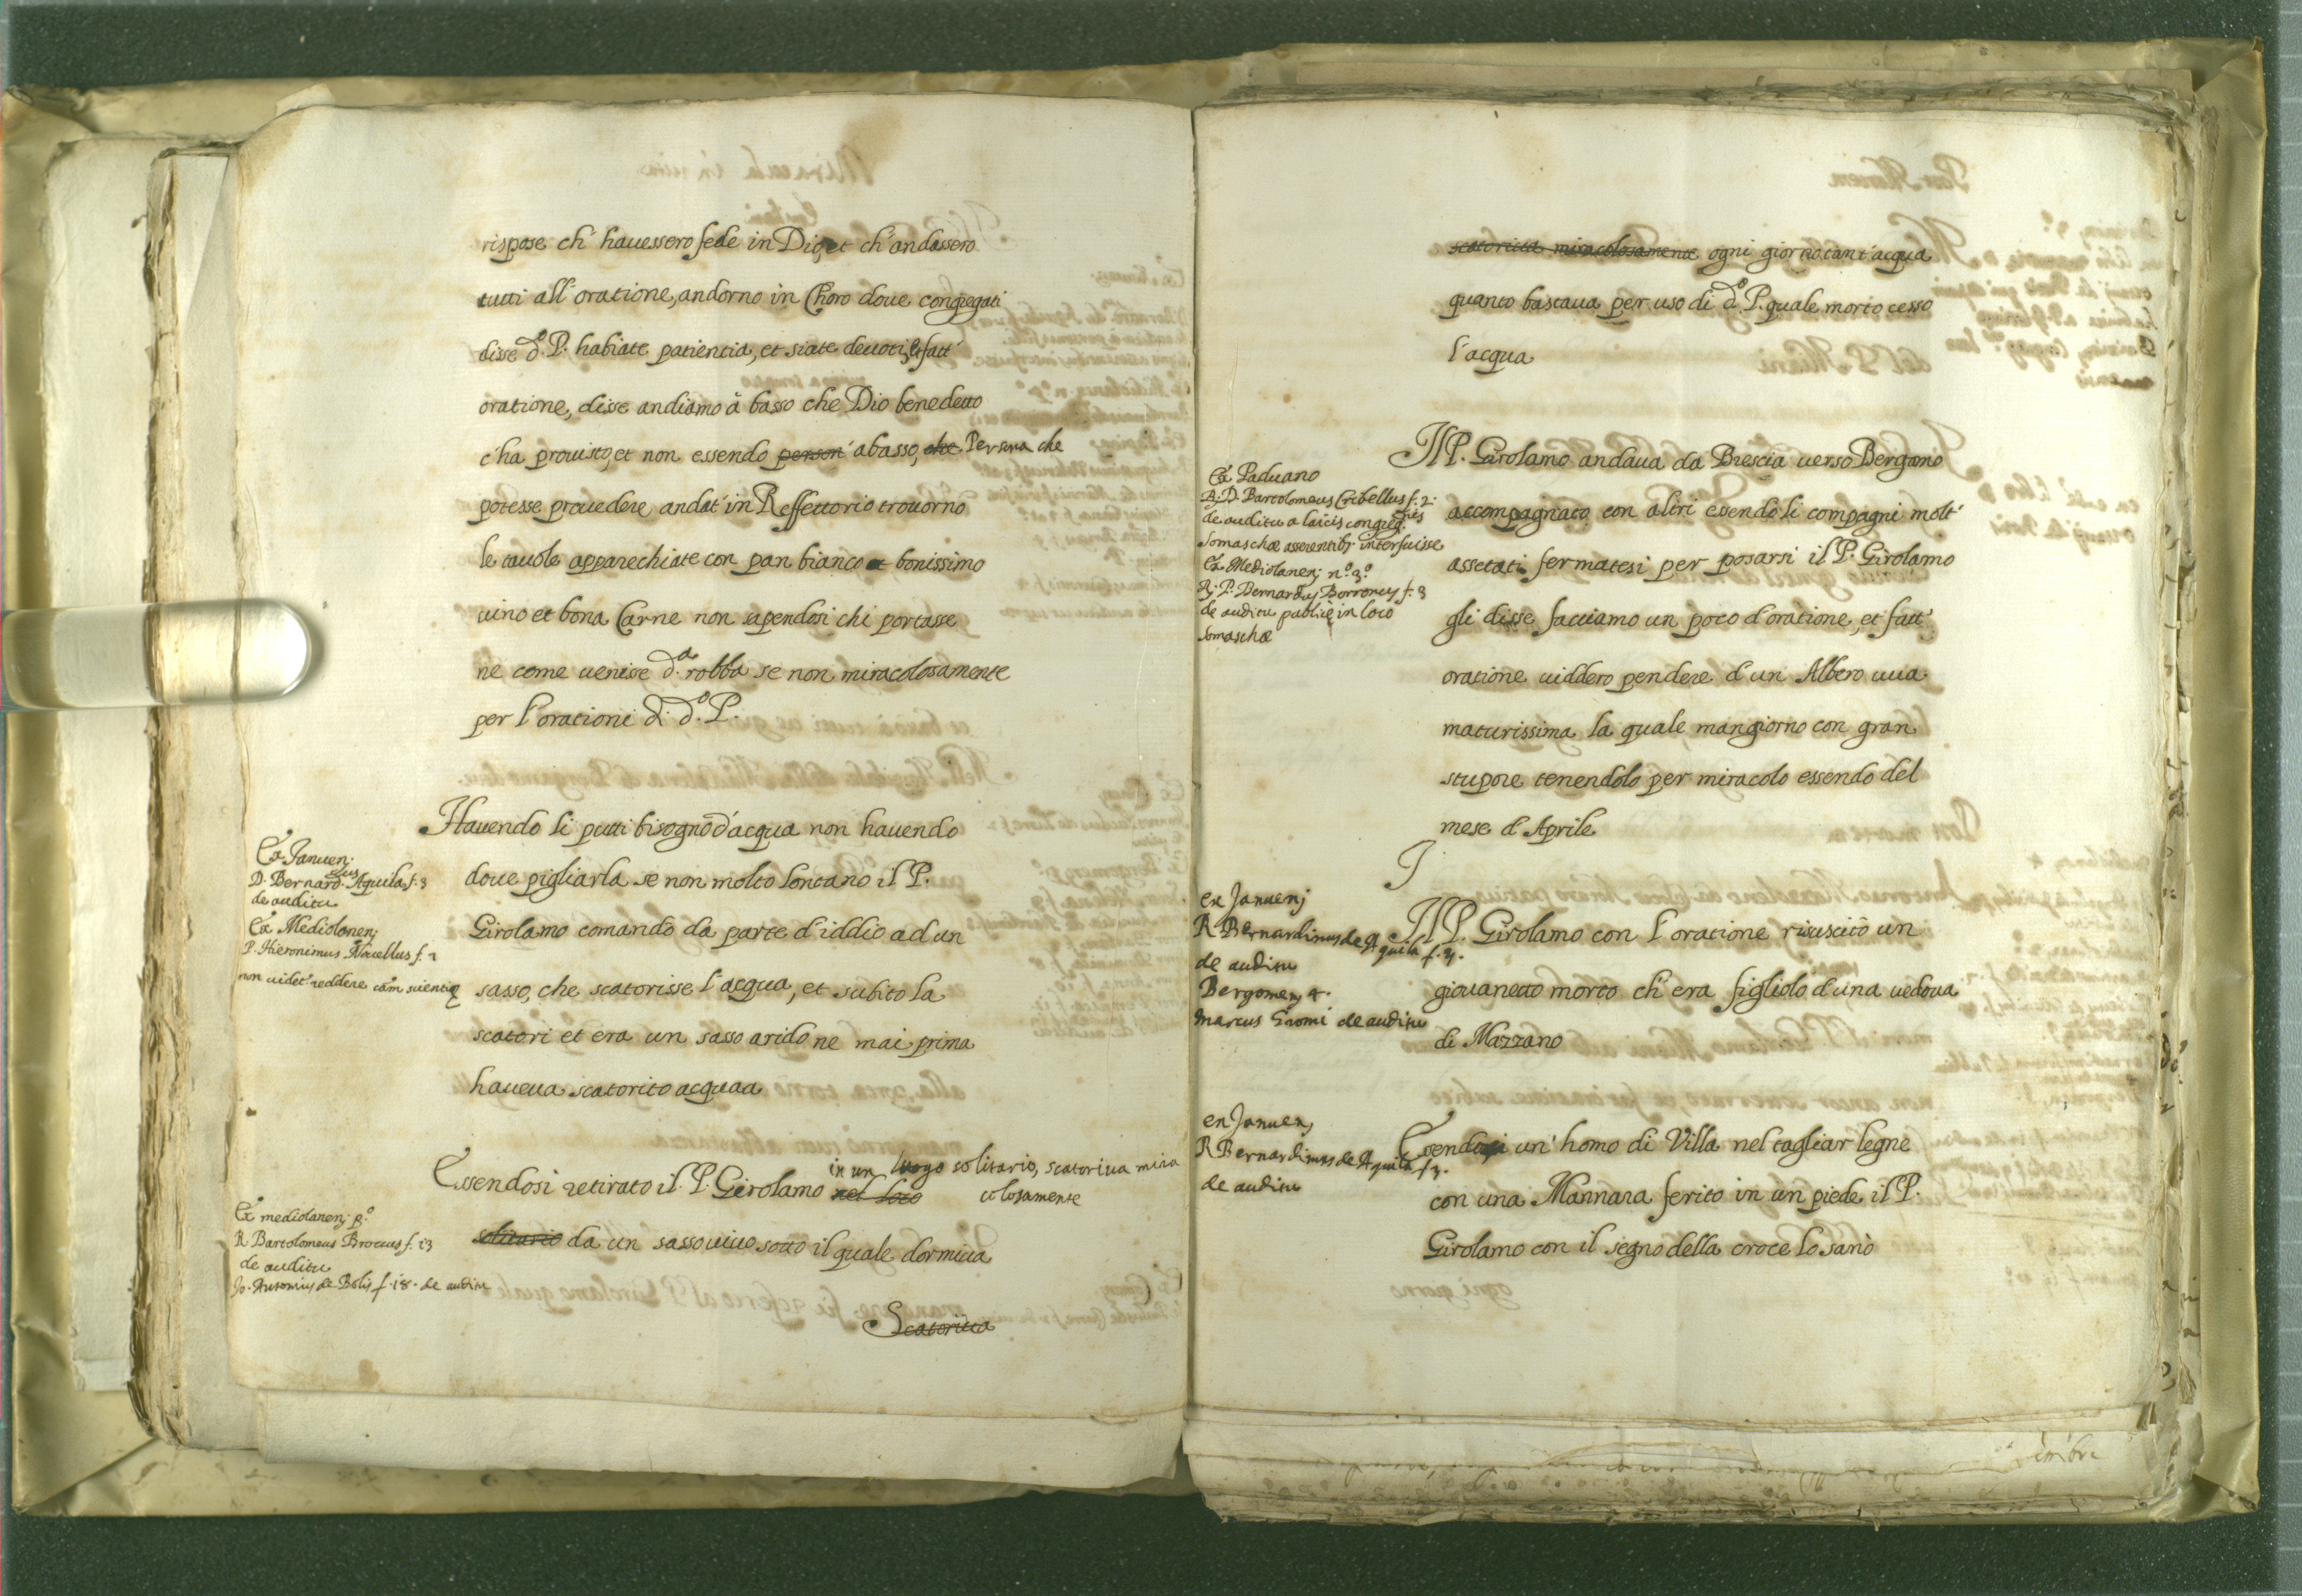 rispose ch' hauessero fede in Dio, et ch' andassero
tutti all' oratione, andorno in Choro doue congregati
disse d.º P. habiate patientia, et siate deuoti, et fatt'
oratione, disse andiamo à basso che Dio benedetto
c'ha prouisto, et non essendo person' abasso, che Persona che
potesse prouedere andat' in Reffettorio trouorno
le tauole apparechiate con pan bianco et bonissimo
uino et bona Carne non sapendosi chi portasse
ne come uenisse d.ª robba se non miracolosamente
per l'orationi di d.º P.
Hauendo li putti bisogno d'acqua non hauendo
doue pigliarla se non molto lontano il P.
Girolamo comandò da parte d'iddio ad un
sasso, che scatorisse l'acqua, et subito la
scatori et era un sasso arido ne mai prima
haueua scatorito acquaa
Ex Januen;
D. Bernard.us Aquila f. 3
de auditu
Ex Mediolanen;
P. Hieronimus Nouellus f. 2
non uidet' reddere cām scientię
in un luogo solitario, scatoriua mira
Essendosi retirato il P. Girolamo nel loco colosamente
solitario da un sasso uiuo sotto il quale dormiua
Scatoriua
Ex mediolanen; p.º
R Bartolomeus Brocus f. 13
de auditu
Jo. Antonius de Bolis f. 18. de auditu
scatoriua miracolosamente ogni giorno tant' acqua
quanto bastaua per uso di d.º P. quale morto cesso
l'acqua
Il P. Girolamo andaua da Brescia uerso Bergamo
accompagnato con altri essendo li compagni molt'
assetati fermatesi per posarsi il P. Girolamo
gli disse facciamo un poco d'oratione, et fatt'
oratione uiddero pendere d'un Albero uua
maturissima la quale mangiorno con gran
stupore tenendolo per miracolo essendo del
mese d'Aprile
Ex Paduano
R. D. Bartolomeus Cribellus f. 2.
de auditu a laicis congreg.nis
Somaschæ asserentib; interfuisse
Ex Mediolanen; n.º 3.º
R. P. Bernardus Borronus f. 3
de auditu publice in loco
Somaschæ
I
Il P. Girolamo con l'oratione risuscitò un
giouanetto morto ch' era figliolo d'una uedoua
di Mazzano
ex Januenj
R Bernardinus de Aquila f. 3.
de auditu
Bergomen; 4.
Marcus Gromi de auditu
Essendosi un' homo di Villa nel tagliar legne
con una Mannara ferito in un piede il P.
Girolamo con il segno della croce lo sanò
ex Januen;
R Bernardinus de Aquila f. 3.
de auditu